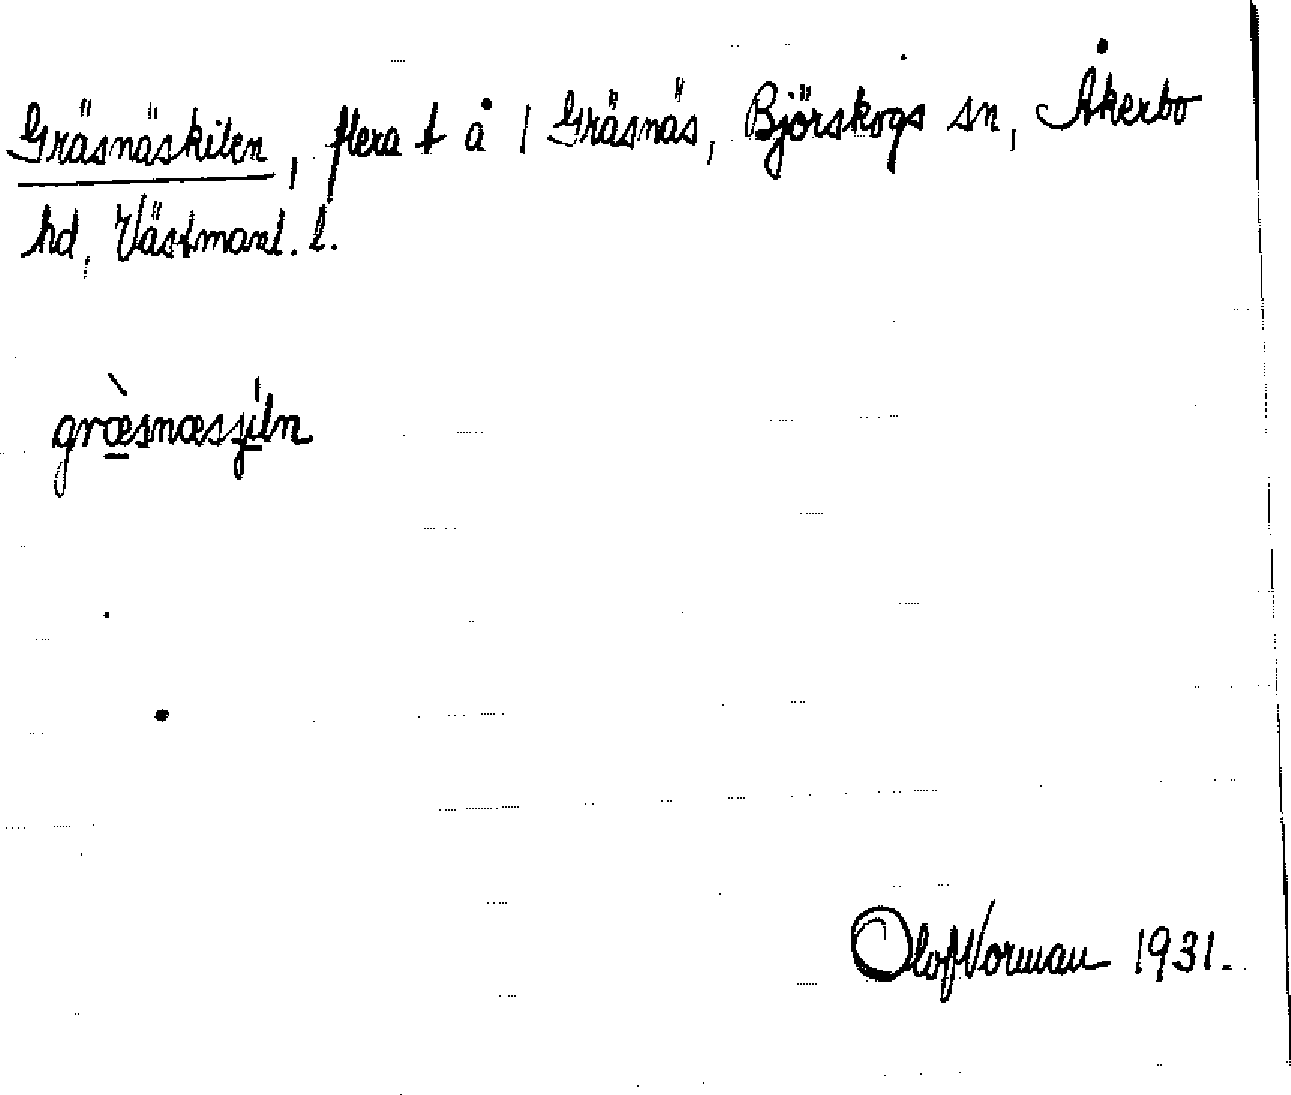 Gräsnäskilen, flera t å 1 Gräsnäs, Björskogs sn, Åkerbo
hd, Västmanl. l.
græ̀snæsʒíln
Olof Norman 1931.